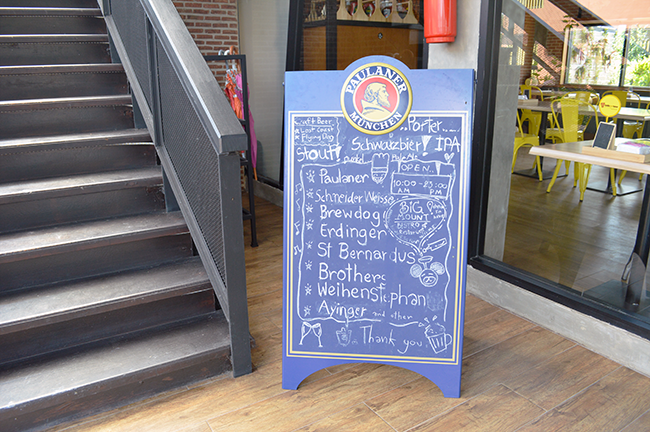 PAULANER
MÜNCHEN
Craft Beer
Lost Coast
Flying Dog
Stout!
Porter
Schwarzbier!
IPA
Pale Ale
OPEN
10:00 - 23:00
AM PM
BIG
MOUNT
BISTRO
Restaurant
Paulaner
Schneider Weisse
Brewdog
Erdinger
St Bernardus
Brother
Weihenstephan
Ayinger and other
Thank you